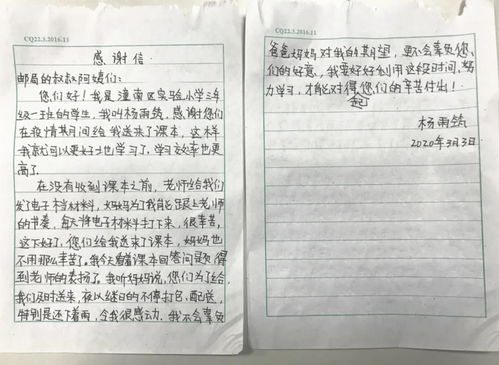 CQ22.3.2016.11
感谢信
邮局的叔叔阿姨们：
您们好！我是潼南区实验小学三年
级一班的学生，我叫杨雨筑，感谢您们
在疫情其月间给我送来了课本，这样
我就可以更好土也学习了，学习效率也更
高了。
在没有收到课本之前，老师给我们
发了电子档材料，妈妈为了我能足艮上老师
的节奏，每天将电子材料打下来，很辛苦，
这下好了，您们给我送来了课本，妈妈也
不用那么辛苦了。我今天看着课本回答问题得
到老师的表扬了。我听妈妈说，您们为了给
我们及时送来，夜以继日的不停打包、配送，
特别是还下着雨，令我很感动。我不会辜负
CQ22.3.2016.11
爸爸妈妈对我的期望，更不会辜负您
们的好意，我要好好利用这段时间，努
力学习，才能对得起您们的辛苦付出！
杨雨筑
2020年3月3日